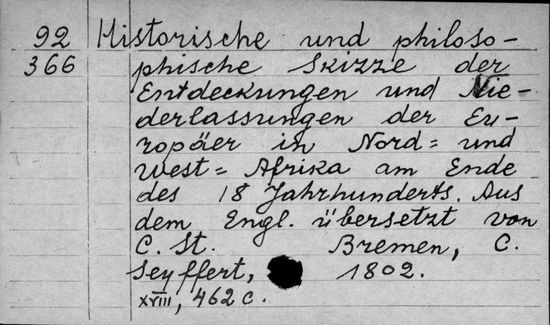 92 Historische und philoso-
366 phische Skizze der
Entdeckungen und Nie-
derlassungen der Eu-
ropäer in Nord= und
West= Afrika am Ende
des 18 Jahrhunderts. Aus
dem Engl. übersetzt von
C. St. Bremen, C.
Seyffert, 1802.
XVIII, 462 c.